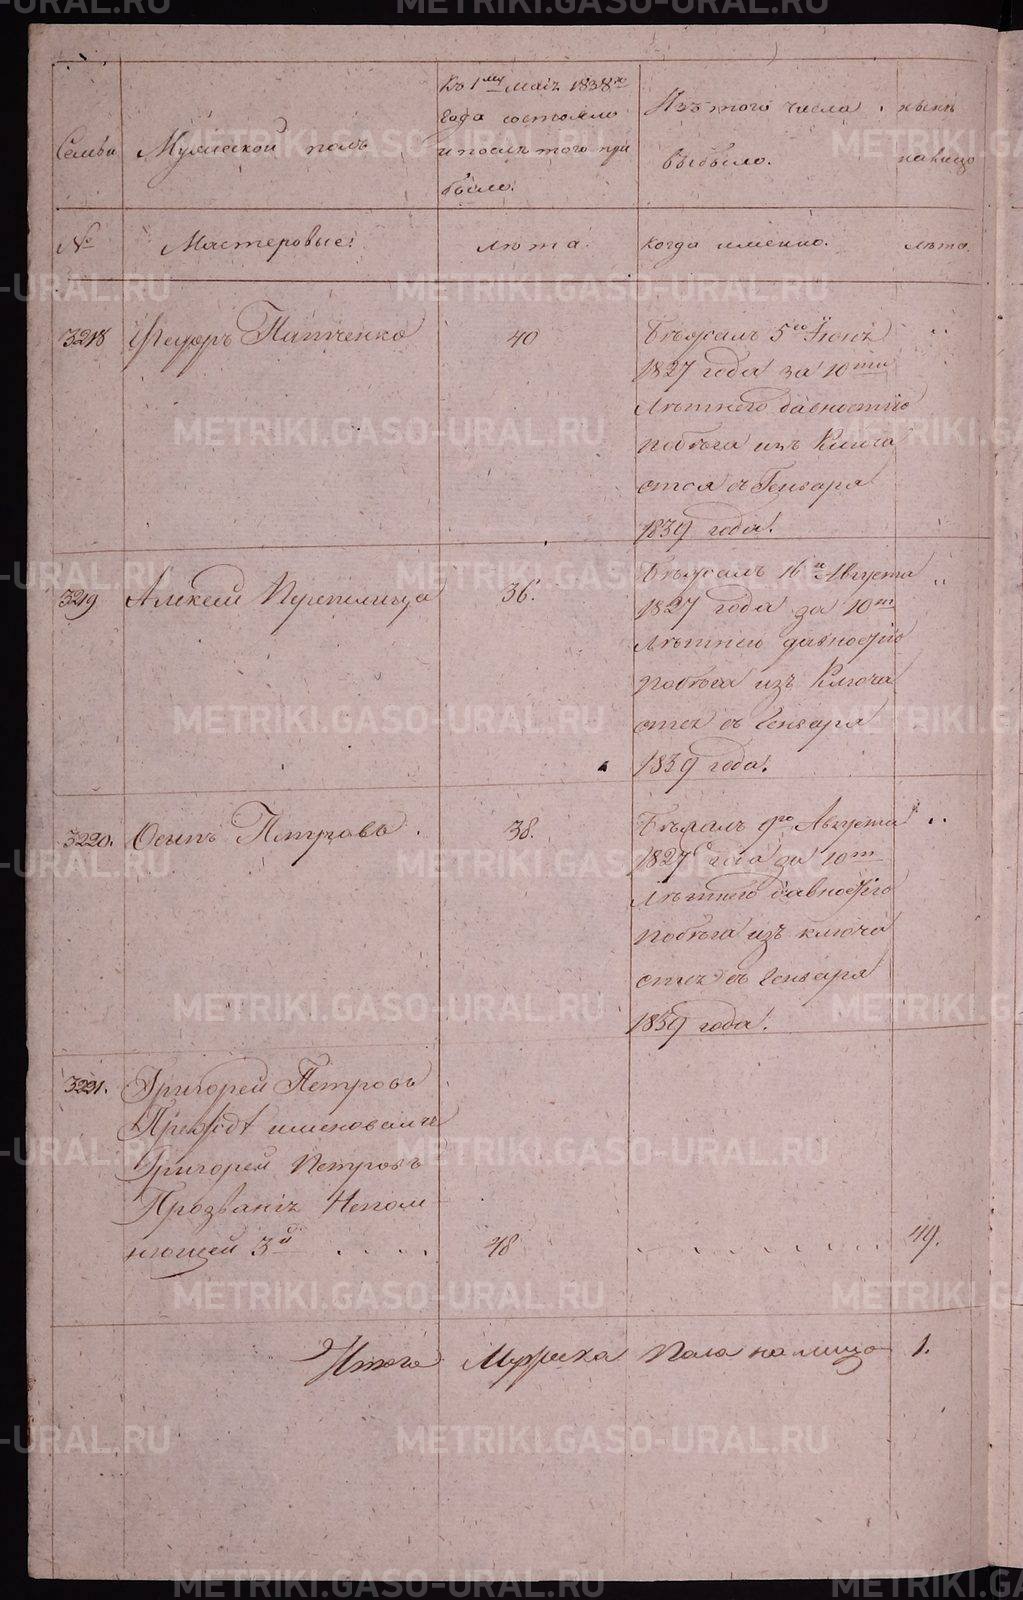 Семьи
Мужеской полъ
Къ 1му Маія 1838го
года состояло
и послѣ того при
было.
Изъ того числа
выбыло.
нынѣ
налицо
№
Мастеровые:
лѣта.
когда именно.
лѣта.
3218
Федоръ Папченко
40
Бѣжалъ 5го Іюня
1827 года за 10ти
Лѣтнего давностію
побѣга изъ Ключа
ется съ Генваря
1839 года.
3219
Алексей Перепелица
36.
Бѣжалъ 16го Августа
1827 года за 10ти
Лѣтнею давностію
побѣга изъ Ключа
ется съ Генваря
1839 года.
3220.
Осипъ Петровъ.
38.
Бѣжалъ 9го Августа
1827 года за 10ти
Лѣтнего давностію
побѣга изъ ключа
ется съ Генваря
1839 года.
3221.
Григорей Петровъ
именовался
Григорей Петровъ
Прозваніе Непом
нющей 3й
48
49.
Итого Мужеска Пола налицо 1.
METRIKI.GASO-URAL.RU